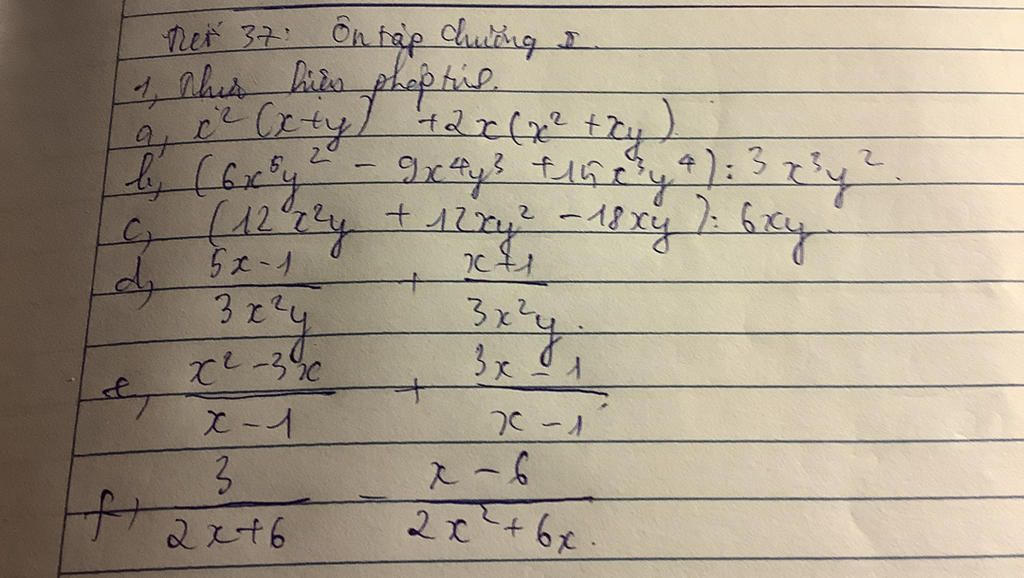 Tiết 37: Ôn tập chương II.
1, Thực hiện phép tính.
a, x²(x+y) + 2x(x² + xy).
b, (6x⁵y² - 9x⁴y³ + 15x³y⁴) : 3x³y².
c, (12x²y + 12xy² - 18xy) : 6xy.
d, (5x-1)/(3x²y) + (x+1)/(3x²y).
e, (x²-3x)/(x-1) + (3x-1)/(x-1).
f, 3/(2x+6) - (x-6)/(2x²+6x).